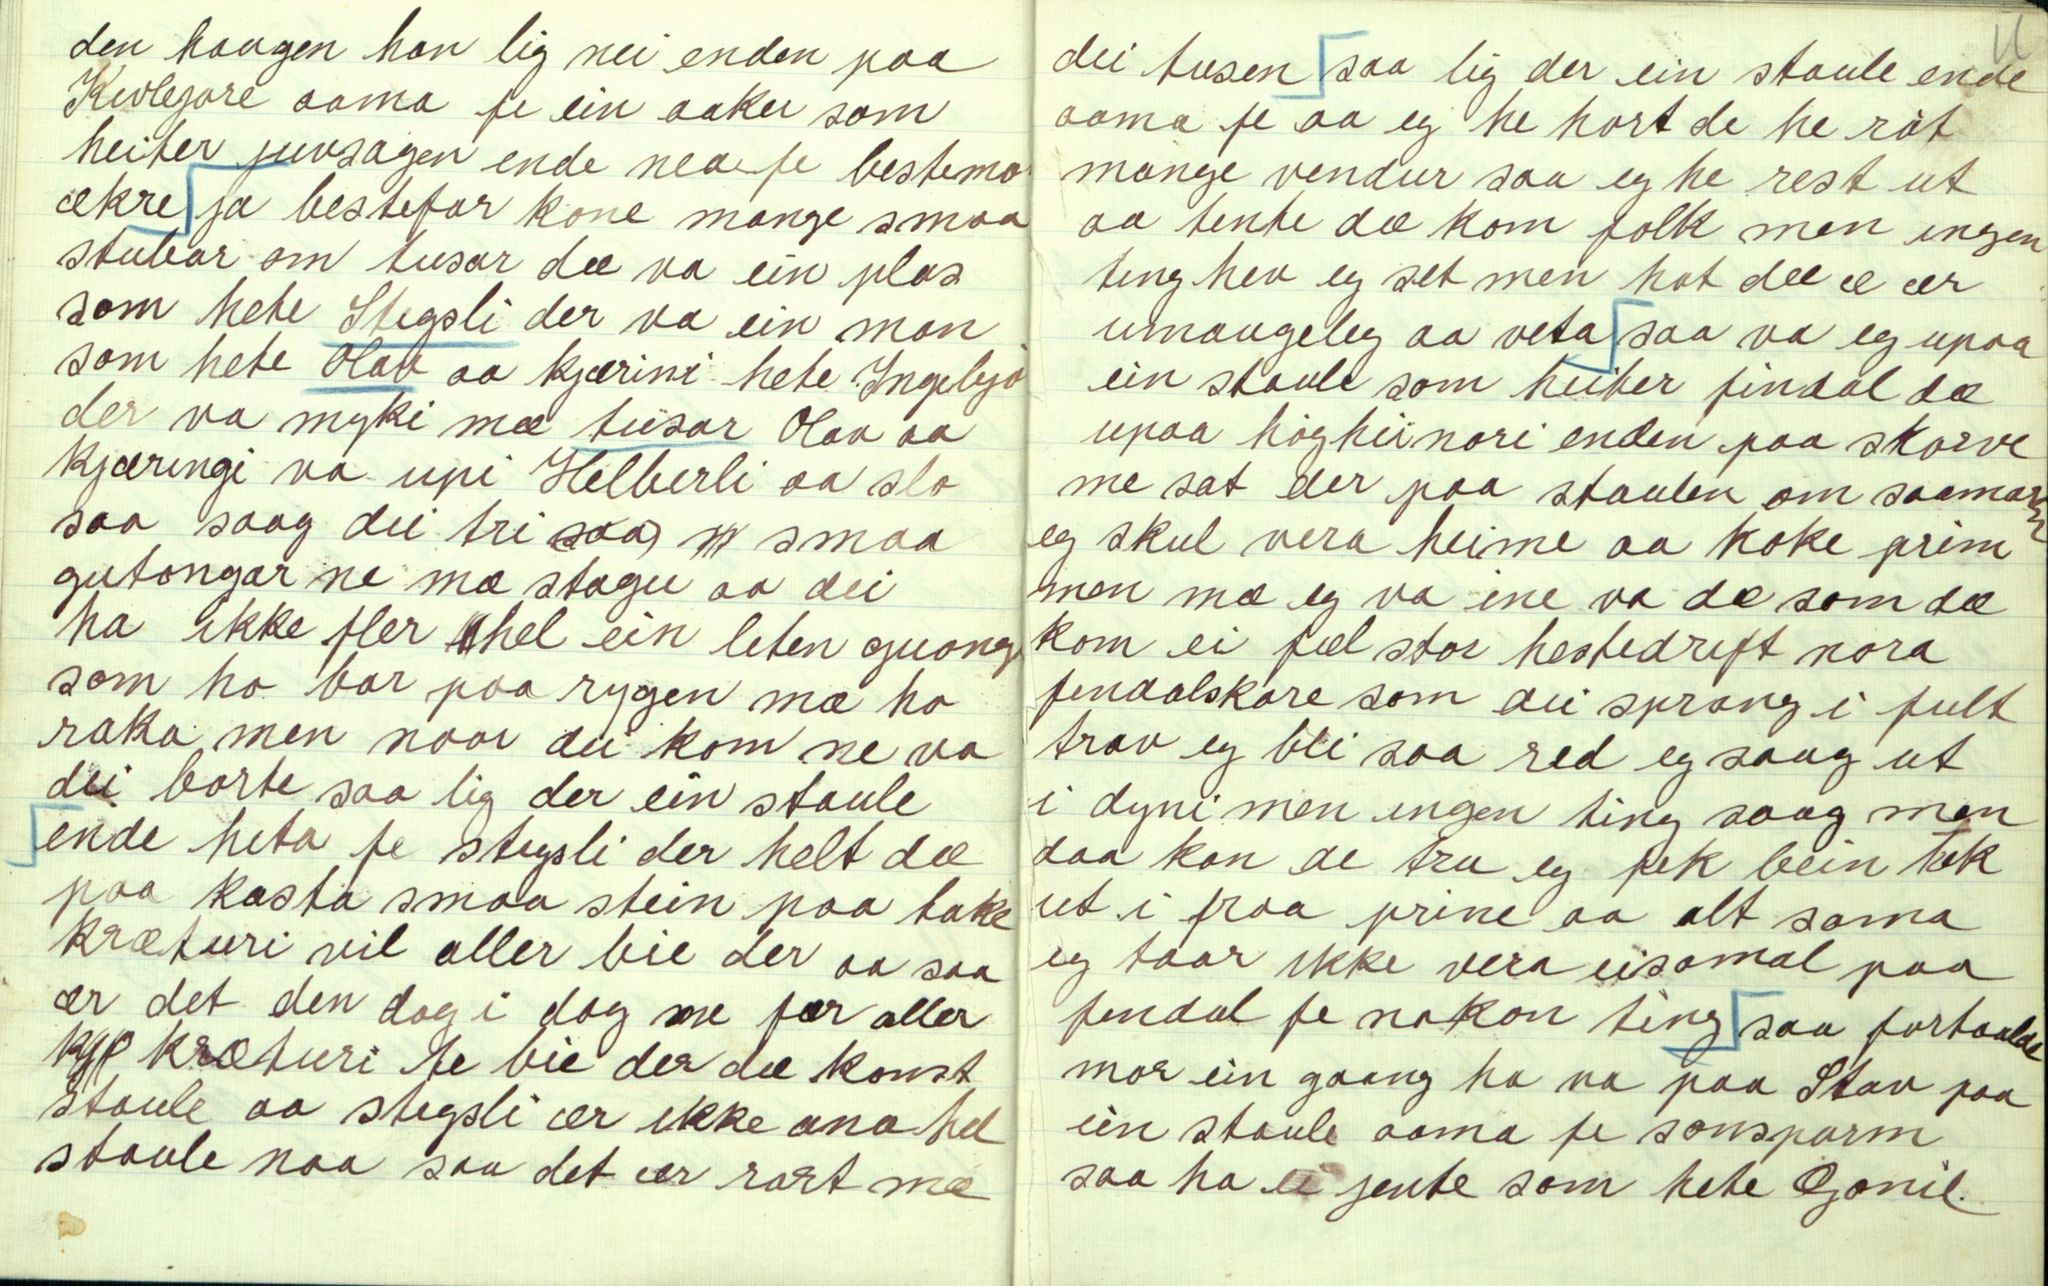 den haugen han lig nei enden paa
Kivlegare aama fe ein aaker som
heiter juvsagen ende nea fe bestemo
ækre ja bestefar kone mange smaa
stubar om tusar dæ va ein plas
som hete Stegsli der va ein man
som hete Olav aa kjærini hete Ingebjø
der va myki mæ tusar Olav aa
kjæringi va upi Helberli aa slo
saa saag dei tri smaa
gutongar ne mæ stogu aa dei
ha ikke fler hel ein leten guonge
som ho bar paa rygen mæ ho
raka men naar dei kom ne va
dei borte saa lig der ein staule
ende heta fe stegsli der helt dæ
paa kasta smaa stein paa take
kræturi vil aller bie der aa saa
ær det den dag i dag me fær aller
kræturi te bie der dæ konst
staule aa stegsli ær ikke ana hel
staule naa saa det ær rart mæ
11
dei tusen saa lig der ein staule ende
aama fe aa eg he hørt de he rät
mange vendur saa eg he rest ut
aa tente dæ kom folk men ingen
ting hev eg set men hat dæ æ ær
umaugeleg aa veta saa va eg upaa
ein staule som heiter findal dæ
upaa høghei nori enden paa skorve
me sat der paa staulen om saamar
eg skul vera heime aa koke prim
men mæ eg va ine va dæ som dæ
kom ei fæl stor hestedrift nora
fendalskare som dei sprang i fult
trav eg blei saa red eg saag ut
i dyni men ingen ting saag men
daa kan de tru eg fek bein tæk
ut i fraa prine aa alt sama
eg taar ikke vera eisamal paa
fendal fe nokon ting saa fortaalde
mor ein gaang ho va paa Stav paa
ein staule aama fe sonsparm
saa ha ei jente som hete Ogonil